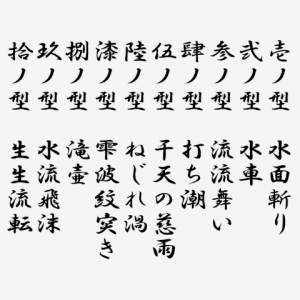 壱ノ型 水面斬り
弐ノ型 水車
参ノ型 流流舞い
肆ノ型 打ち潮
伍ノ型 干天の慈雨
陸ノ型 ねじれ渦
漆ノ型 雫波紋突き
捌ノ型 滝壷
玖ノ型 水流飛沫
拾ノ型 生生流転